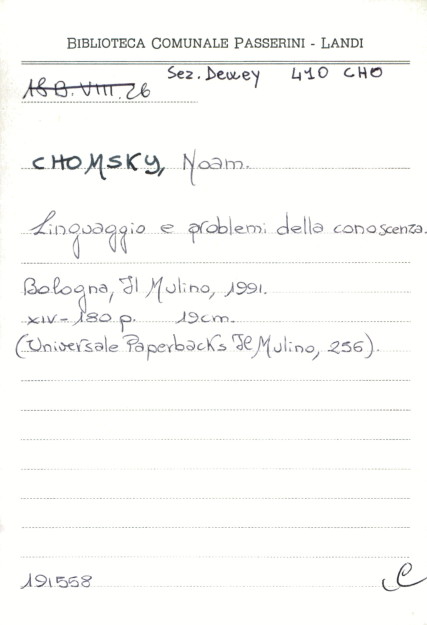 BIBLIOTECA COMUNALE PASSERINI - LANDI
Sez. Dewey 410 CHO
VIII.26
CHOMSKY, Noam.
Linguaggio e problemi della conoscenza.
Bologna, Il Mulino, 1991.
XIV-180 p. 19cm.
(Universale Paperbacks Il Mulino, 256).
191558